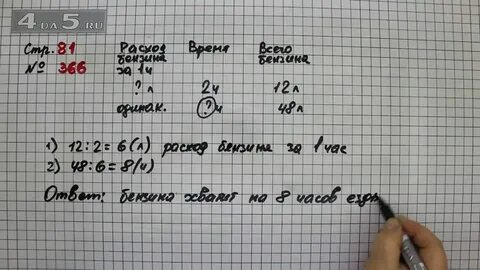 4DA5.RU
Стр. 81 Расход Время Всего
№ 366 бензина бензина
за 1ч
? л 2ч 12л
одинак. ? ч 48л
1) 12:2=6(л) расход бензина за 1 час
2) 48:6=8(ч)
Ответ: бензина хватит на 8 часов езды